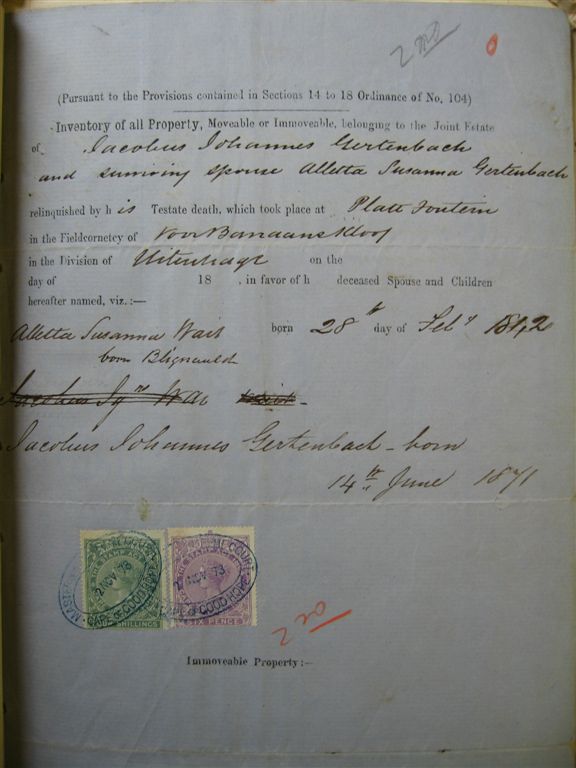 2nd
(Pursuant to the Provisions contained in Sections 14 to 18 Ordinance of No. 104)
Inventory of all Property, Moveable or Immoveable, belonging to the Joint Estate
of Jacobus Johannes Gertenbach
and surviving spouse Alletta Susanna Gertenbach
relinquished by his Testate death, which took place at Platt Fontein
in the Fieldcornetcy of
in the Division of Uitenhage on the
day of 18 , in favor of h deceased Spouse and Children
hereafter named, viz.:—
Alletta Susanna born 28th day of Feby 1842
born Blignauldt
Jacobus Johannes Gertenbach - born
14th June 1871
THE STAMP ACT
2 NOV 73
CAPE OF GOOD HOPE
SHILLINGS
COURT
THE STAMP ACT
2 NOV 73
CAPE OF GOOD HOPE
SIX PENCE
2nd
Immoveable Property:—